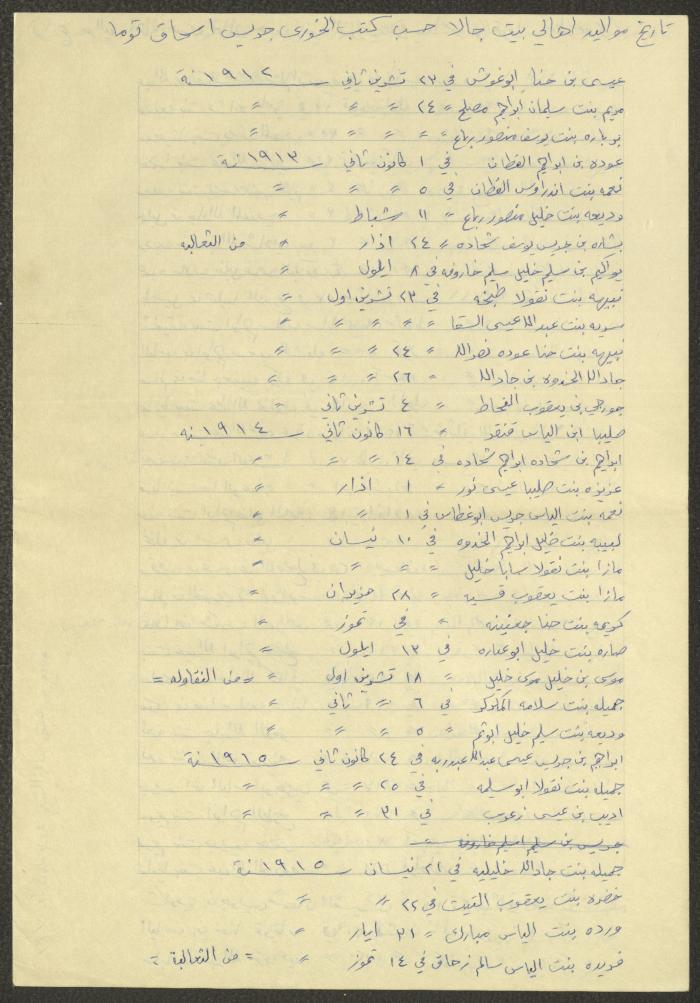 تاريخ مواليد اهالي بيت جالا حسب كتب الخوري جريس اسحاق توما
عيسى بن حنا ابوغوش في ٢٣ تشرين ثاني سنة ١٩١٢
مريم بنت سليمان ابراهيم مصلح " ٢٤ " " "
بربارة بنت يوسف منصور رباع " " " " "
عوده بن ابراهيم القطان في ١ كانون ثاني سنة ١٩١٣
نعمه بنت اندراوس القطان في ٥ " " "
وديعه بنت خليل منصور رباع " ١١ شباط "
بشاره بن جريس يوسف شحاده " ٢٤ اذار " من الثعالبه
يواكيم بن سليم خليل سليم خاروفه في ٨ ايلول "
نبيهه بنت نقولا طبخه في ٢٣ تشرين اول "
بنت عبدالله عيسى السقا " " " " "
نبيهه بنت حنا عوده نصرالله " ٢٤ " " "
جادالله بن جادالله " ٢٦ " " "
جورجي بن يعقوب " ٤ تشرين ثاني "
صليبا ابن الياس قنقد " ١٦ كانون ثاني سنه ١٩١٤
ابراهيم بن شحاده ابراهيم شحاده في ١٤ " " "
عزيزه بنت صليبا عيسى ثور " ١ اذار "
نعمه بنت الياس جريس ابوغطاس في ١ " "
لبيبه بنت خليل ابراهيم في ١٠ نيسان "
مارا بنت نقولا سابا خليل " " " "
مارا بنت يعقوب " ٢٨ حزيران "
كريمه بنت حنا " في تموز "
صاره بنت خليل ابوعماره في ١٣ ايلول "
موسى بن خليل موسى خليل " ١٨ تشرين اول " = من النقاوله =
جميله بنت سلامه في ٦ " ثاني "
وديعه بنت سليم خليل " ٥ " " "
ابراهيم بن جريس عيسى عبدالله عبدربه في ٢٤ كانون ثاني سنة ١٩١٥
جميله بنت نقولا ابوسليمه في ٢٥ " " "
اديب بن عيسى زعرب في ٣١ " " "
جريس بن سليم خاروفه
جميله بنت جادالله خليليه في ٢١ نيسان سنة ١٩١٥
خضره بنت يعقوب في ٢٢ " "
ورده بنت الياس مبارك " ٣١ ايار "
فريده بنت الياس سالم زحاق في ١٤ تموز " = من الثعالبة =